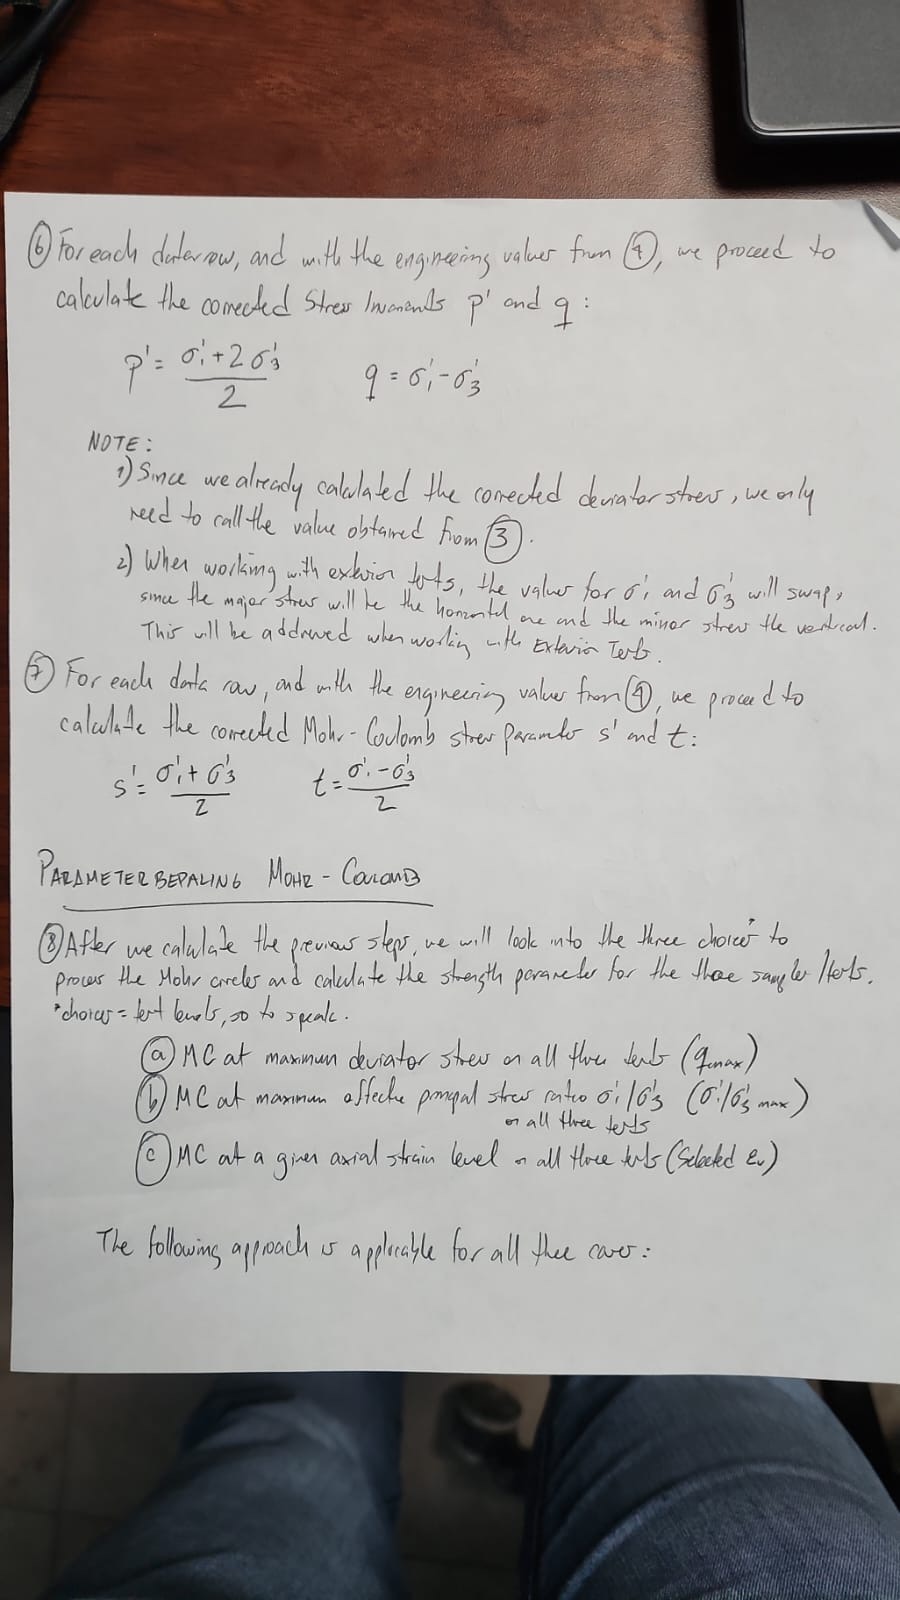 ⑥ For each data row, and with the engineering values from ④, we proceed to
calculate the corrected Stress Invariants p' and q :
p' = (σ'1 + 2σ'3) / 2    q = σ'1 - σ'3
NOTE:
1) Since we already calculated the corrected deviator stress, we only
need to call the value obtained from ③.
2) When working with extension tests, the values for σ'1 and σ'3 will swap,
since the major stress will be the horizontal one and the minor stress the vertical.
This will be addressed when working with Extension Tests.
⑦ For each data row, and with the engineering values from ④, we proceed to
calculate the corrected Mohr-Coulomb stress Parameter s' and t:
s' = (σ'1 + σ'3) / 2    t = (σ'1 - σ'3) / 2
PARAMETERBEPALING MOHR - COULOMB
⑧ After we calculate the previous steps, we will look into the three choices* to
process the Mohr circles and calculate the strength parameters for the three samples/tests.
*choices = test levels, so to speak.
ⓐ MC at maximum deviator stress on all three tests (qmax)
ⓑ MC at maximum effective principal stress ratio σ'1/σ'3 (σ'1/σ'3 max)
on all three tests
ⓒ MC at a given axial strain level on all three tests (Selected εv)
The following approach is applicable for all three cases: